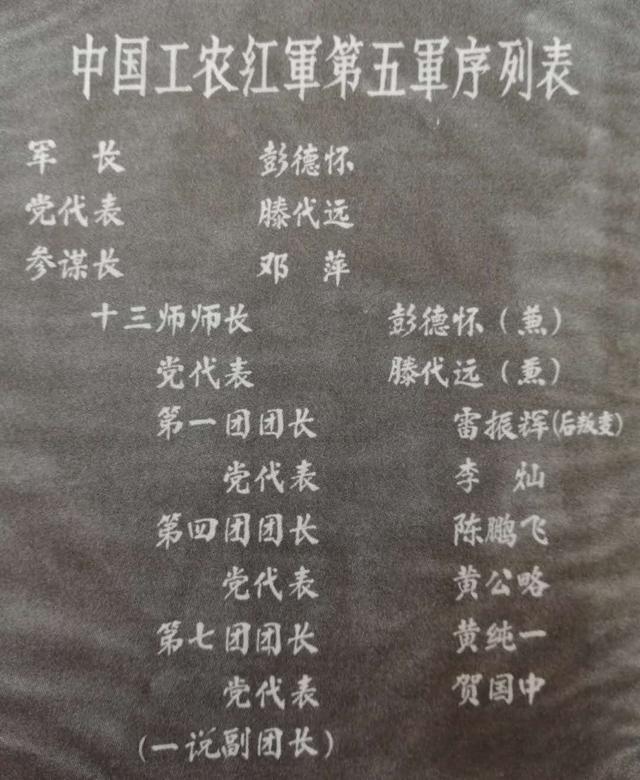 中国工农红軍第五軍序列表
军 长 彭德怀
党代表 滕代远
参谋长 邓 萍
十三师师长 彭德怀(兼)
党代表 滕代远(兼)
第一团团长 雷振辉(后叛变)
党代表 李 灿
第四团团长 陈鹏飞
党代表 黄公略
第七团团长 黄纯一
党代表 贺国中
(一说副团长)